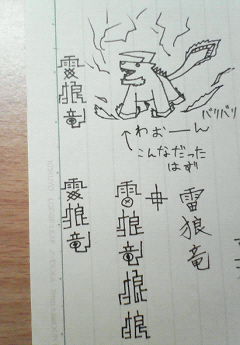 雷狼竜
バリバリ
わおーん
こんなだった
はず
雷狼竜
雷狼竜狼狼
雷狼竜